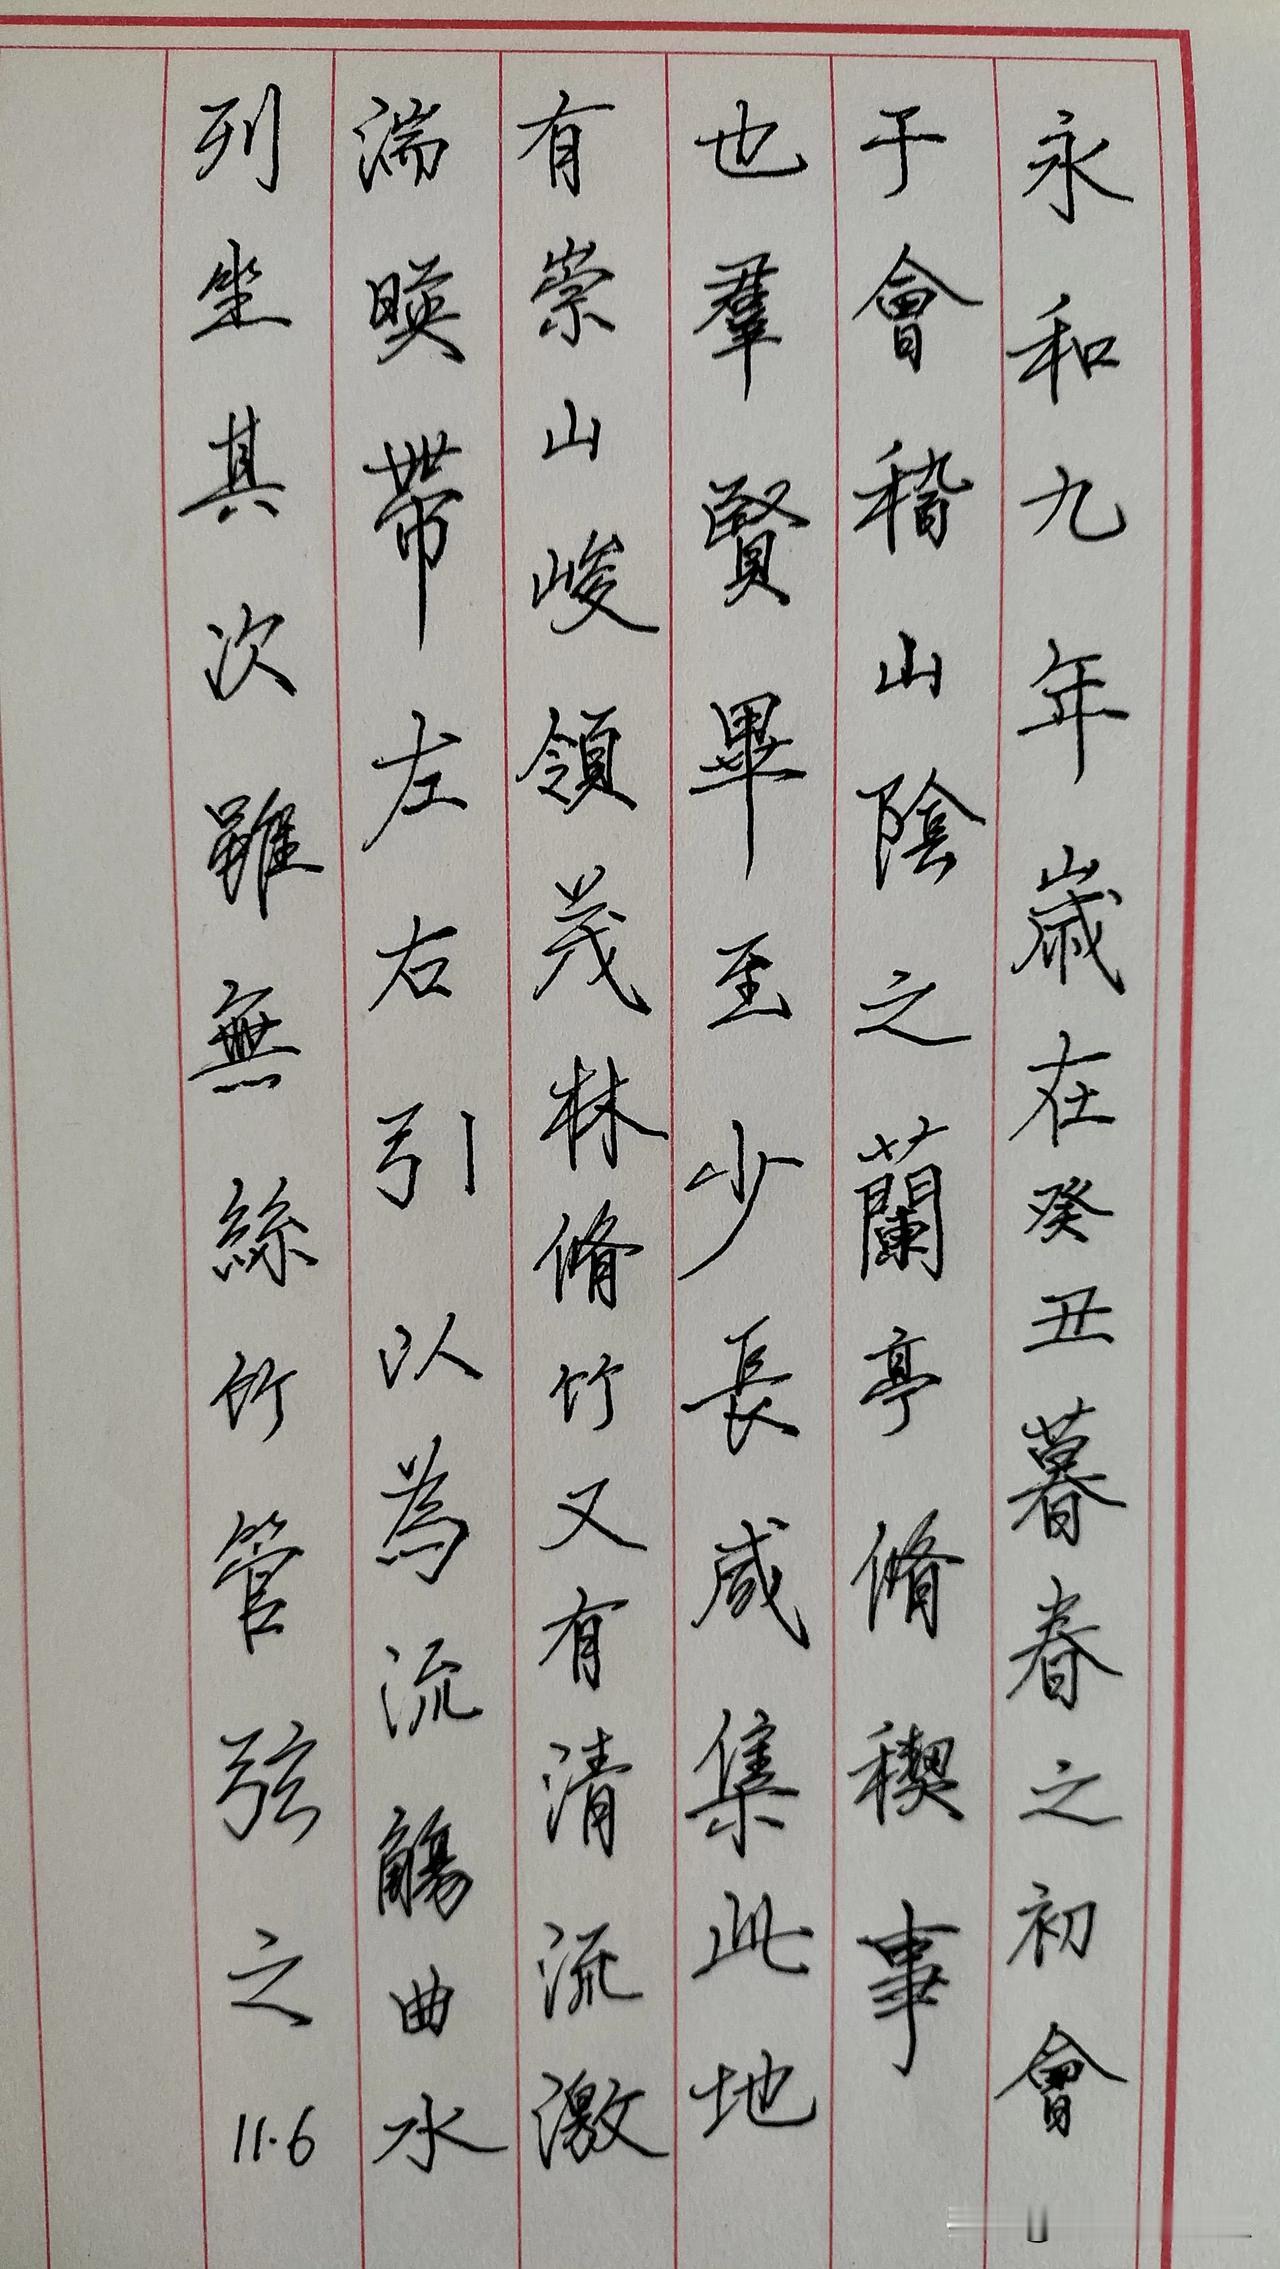 永和九年歲在癸丑暮春之初會
于會稽山陰之蘭亭脩稧事
也羣賢畢至少長咸集此地
有崇山峻領茂林脩竹又有清流激
湍暎帶左右引以為流觴曲水
列坐其次雖無絲竹管弦之
11.6